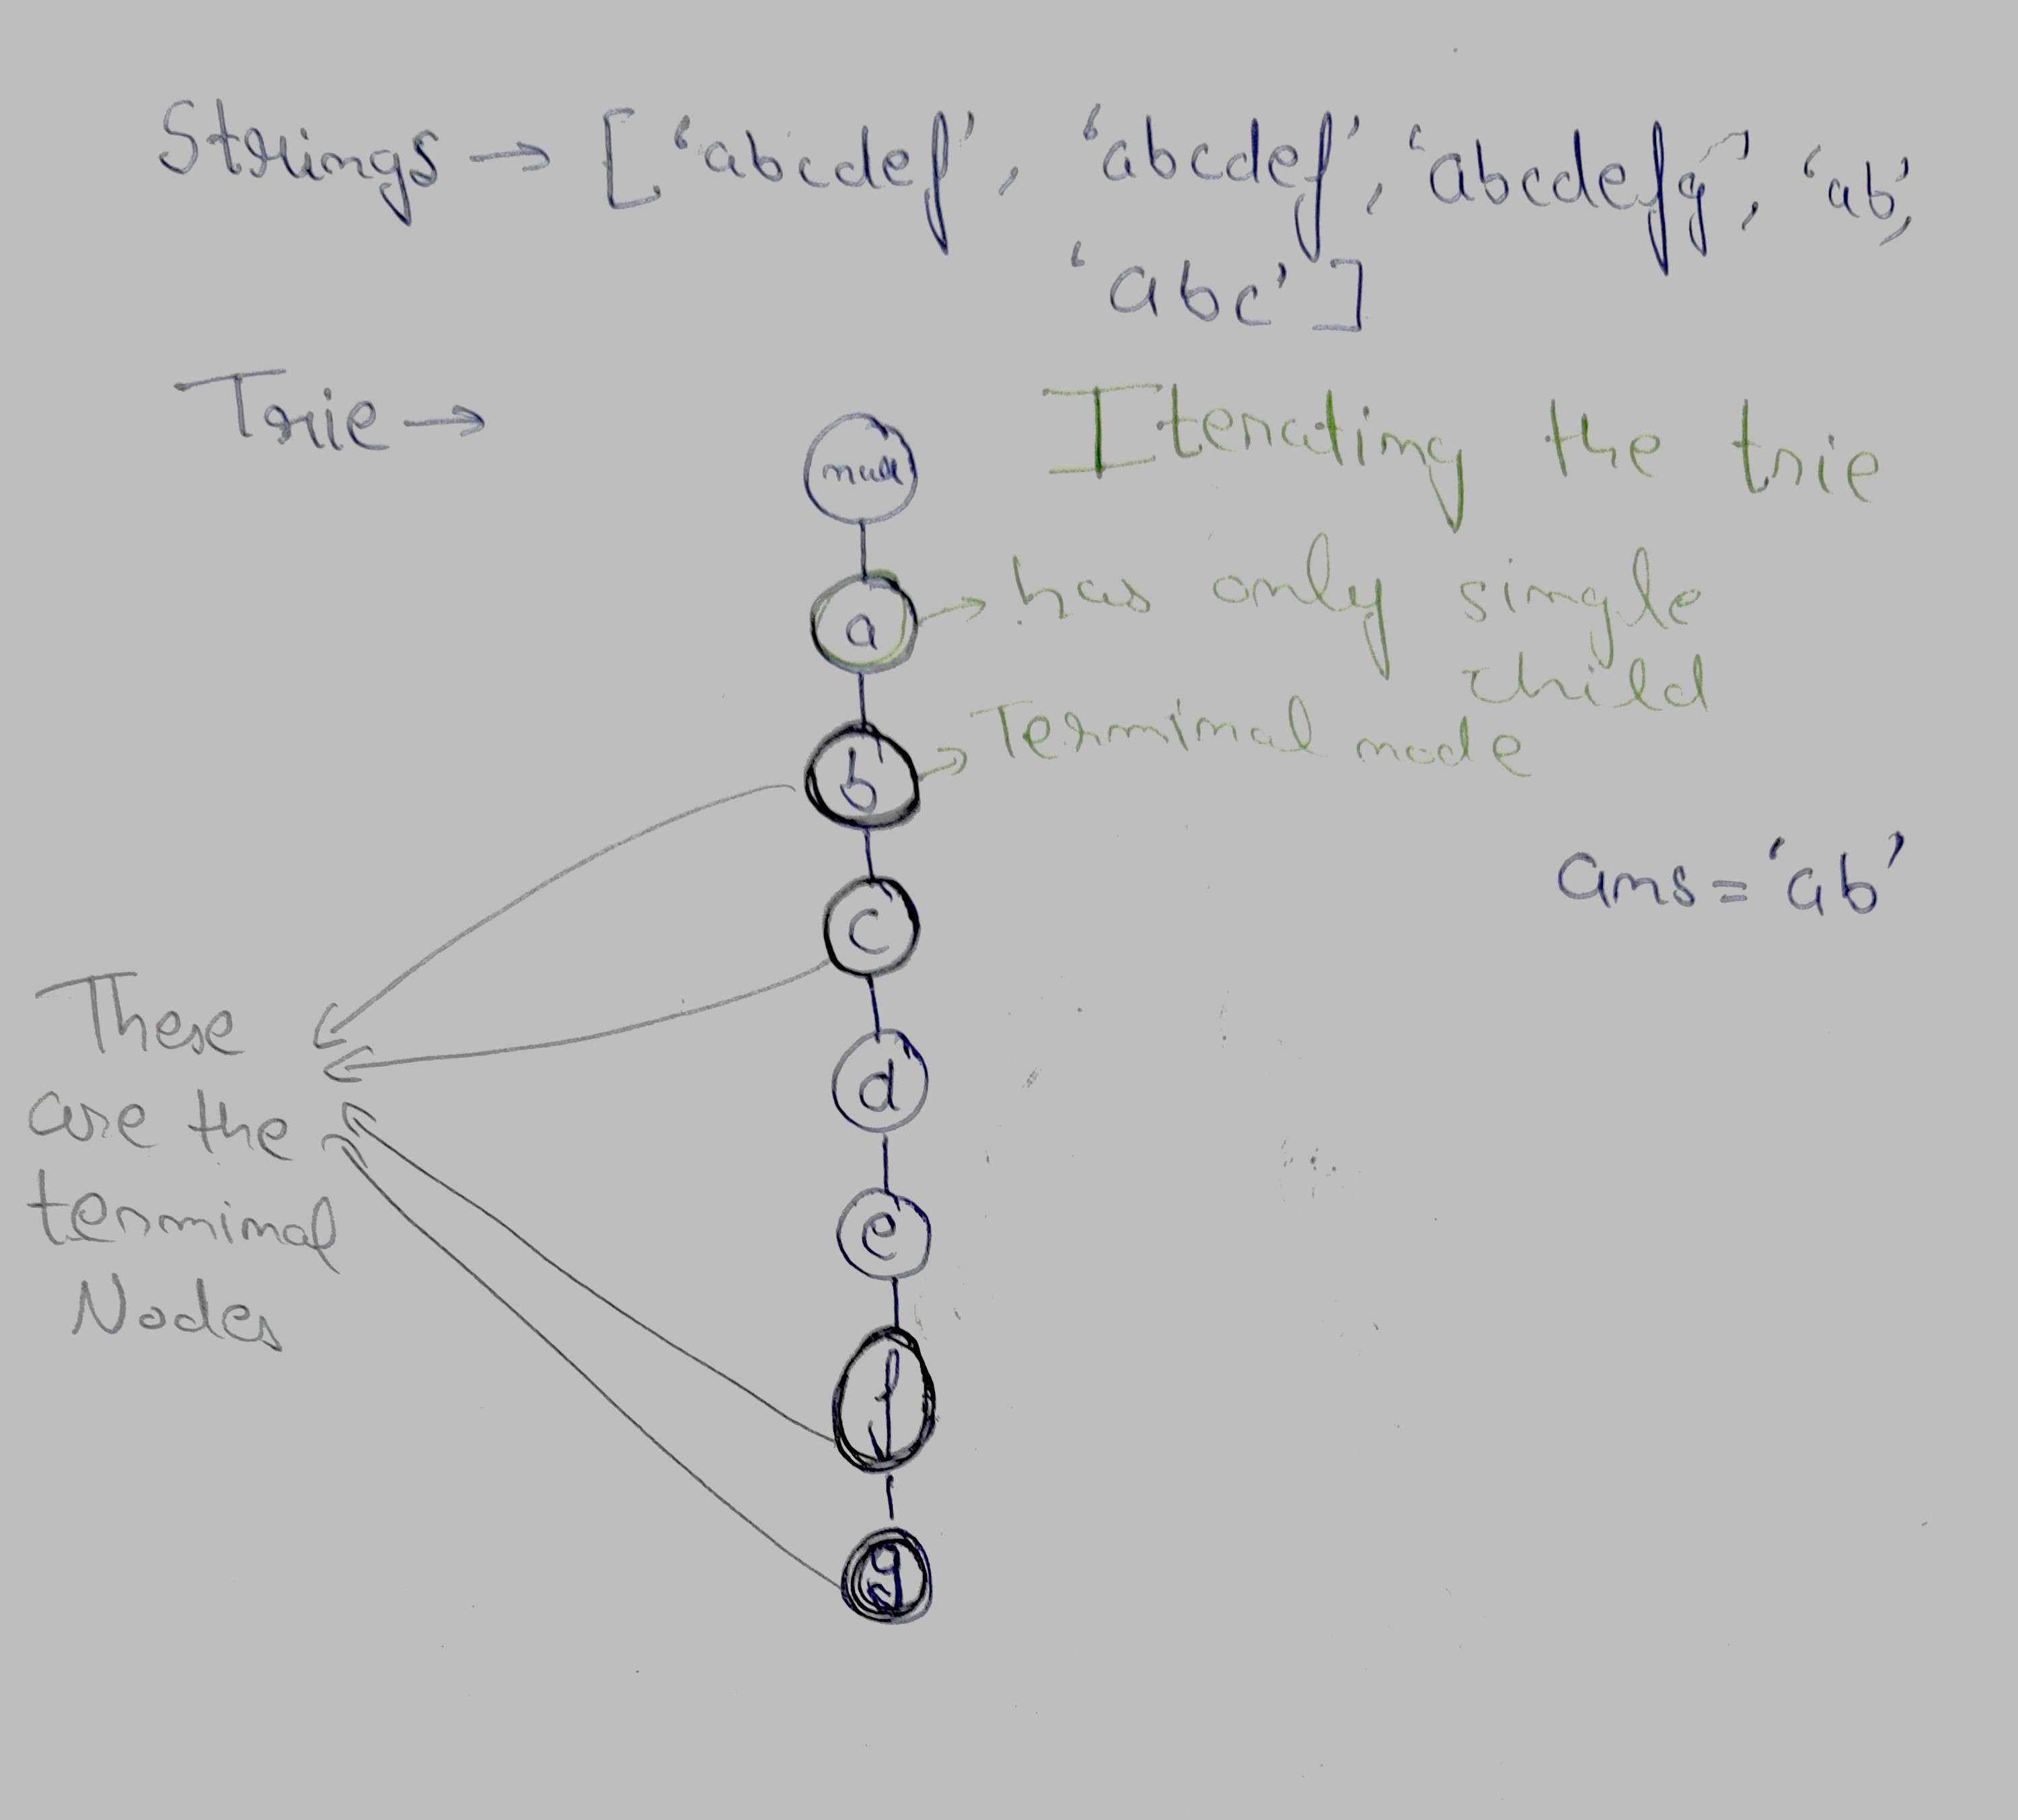 Strings → ['abcdef', 'abcdef', 'abcdefg', 'ab',
'abc']
Trie →
Iterating the trie
null
a → has only single
child
b → Terminal node
ans = 'ab'
c
These
are the
terminal
Nodes
d
e
f
g